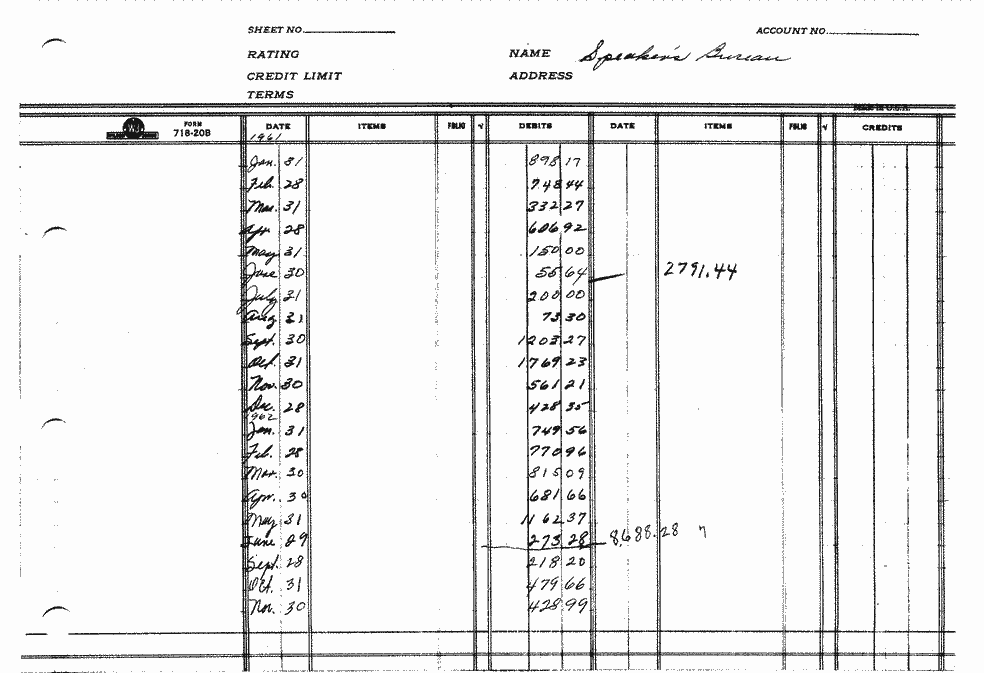 SHEET NO. ACCOUNT NO.
RATING NAME Speaker's Bureau
CREDIT LIMIT ADDRESS
TERMS
MADE IN U.S.A.
FORM 718-20B DATE ITEMS FOLIO √ DEBITS DATE ITEMS FOLIO √ CREDITS
1961
Jan. 31 898 17
Feb. 28 748 44
Mar. 31 332 27
Apr 28 606 92
May 31 150 00
June 30 55 64 2791.44
July 31 200 00
Aug 31 73 30
Sept. 30 1203 27
Oct. 31 1769 23
Nov. 30 561 21
Dec. 28 428 35
1962
Jan. 31 749 56
Feb. 28 770 96
Mar. 30 815 09
Apr. 30 681 66
May 31 1162 37
June 29 273 28 8,688.28
Sept. 28 218 20
Oct. 31 479 66
Nov. 30 428 99